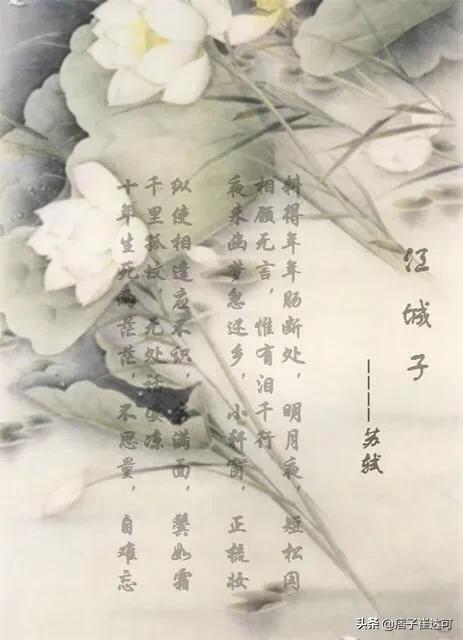 江城子
----苏轼
十年生死两茫茫，不思量，自难忘
千里孤坟，无处话凄凉
纵使相逢应不识，尘满面，鬓如霜
夜来幽梦忽还乡，小轩窗，正梳妆
相顾无言，惟有泪千行
料得年年肠断处，明月夜 短松冈
头条 @痞子崔达可